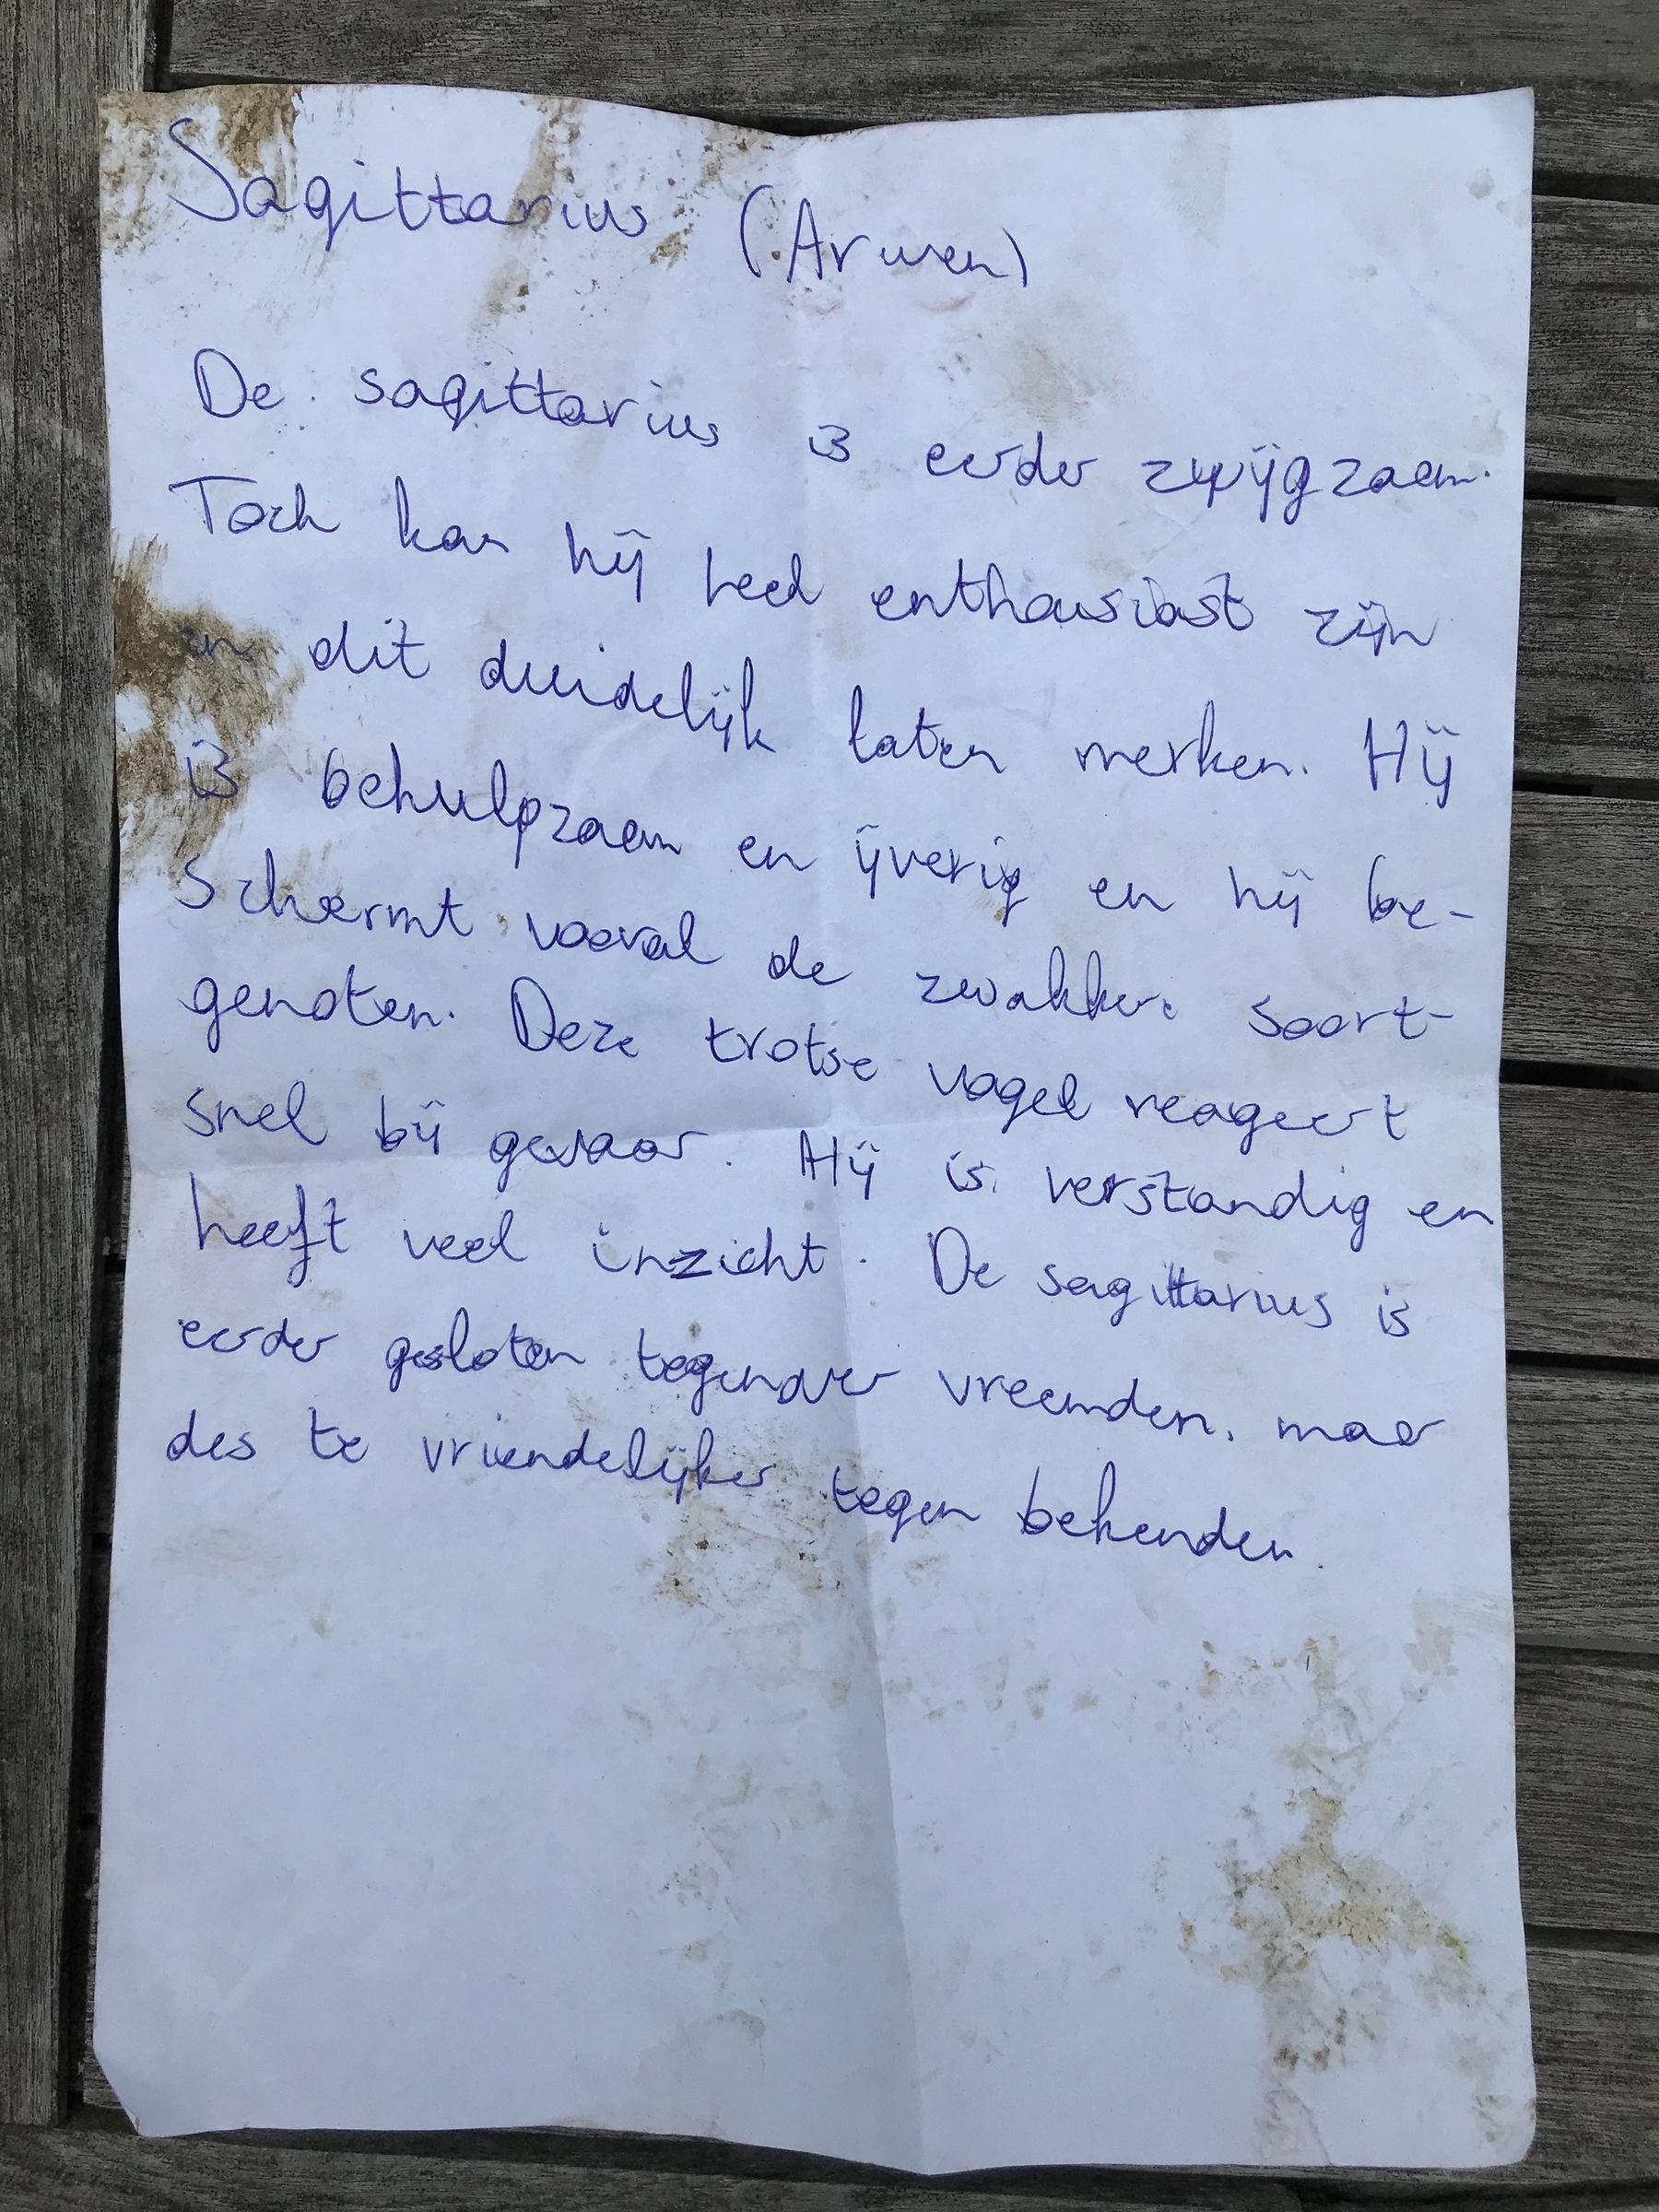 Sagittarius (Arwen)
De sagittarius is eerder zwijgzaam.
Toch kan hij heel enthousiast zijn
en dit duidelijk laten merken. Hij
is behulpzaam en ijverig en hij be-
schermt vooral de zwakkere soort-
genoten. Deze trotse vogel reageert
snel bij gevaar. Hij is verstandig en
heeft veel inzicht. De sagittarius is
eerder gesloten tegenover vreemden, maar
des te vriendelijker tegen bekenden.